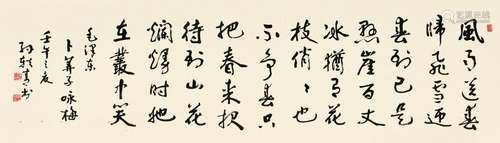 風雨送春
歸飛雪迎
春到已是
懸崖百丈
冰猶有花
枝俏々也
不爭春只
把春來報
待到山花
爛熳時她
在叢中笑
毛澤東
卜算子咏梅
壬午之夏
孙轶青书